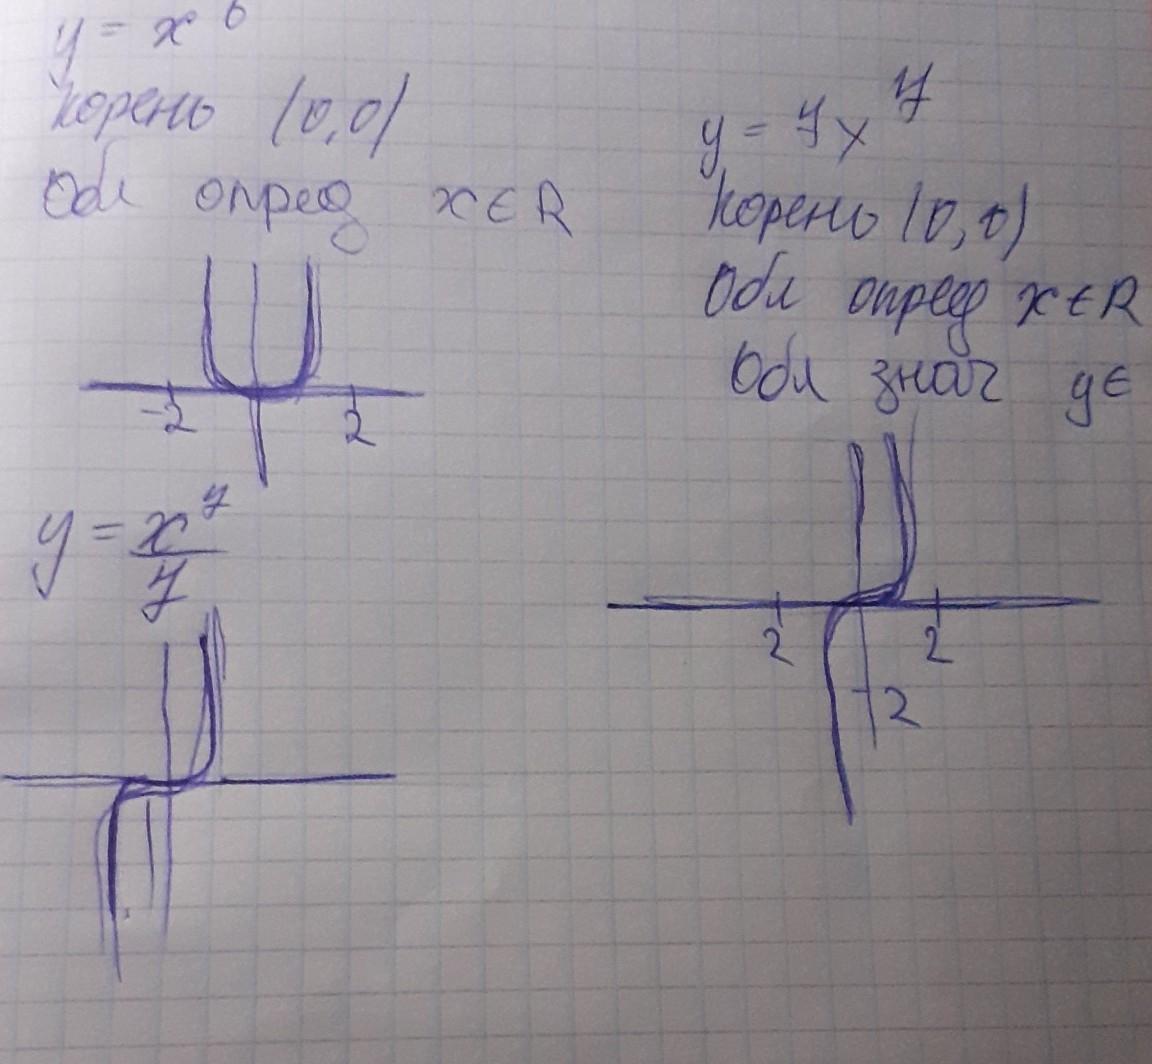 y = x⁶
Корень (0,0)
Обл опред x∈R
-2 2
y = x⁷/7
y = 7x⁷
Корень (0,0)
Обл опред x∈R
Обл знач y∈
2 2
-2